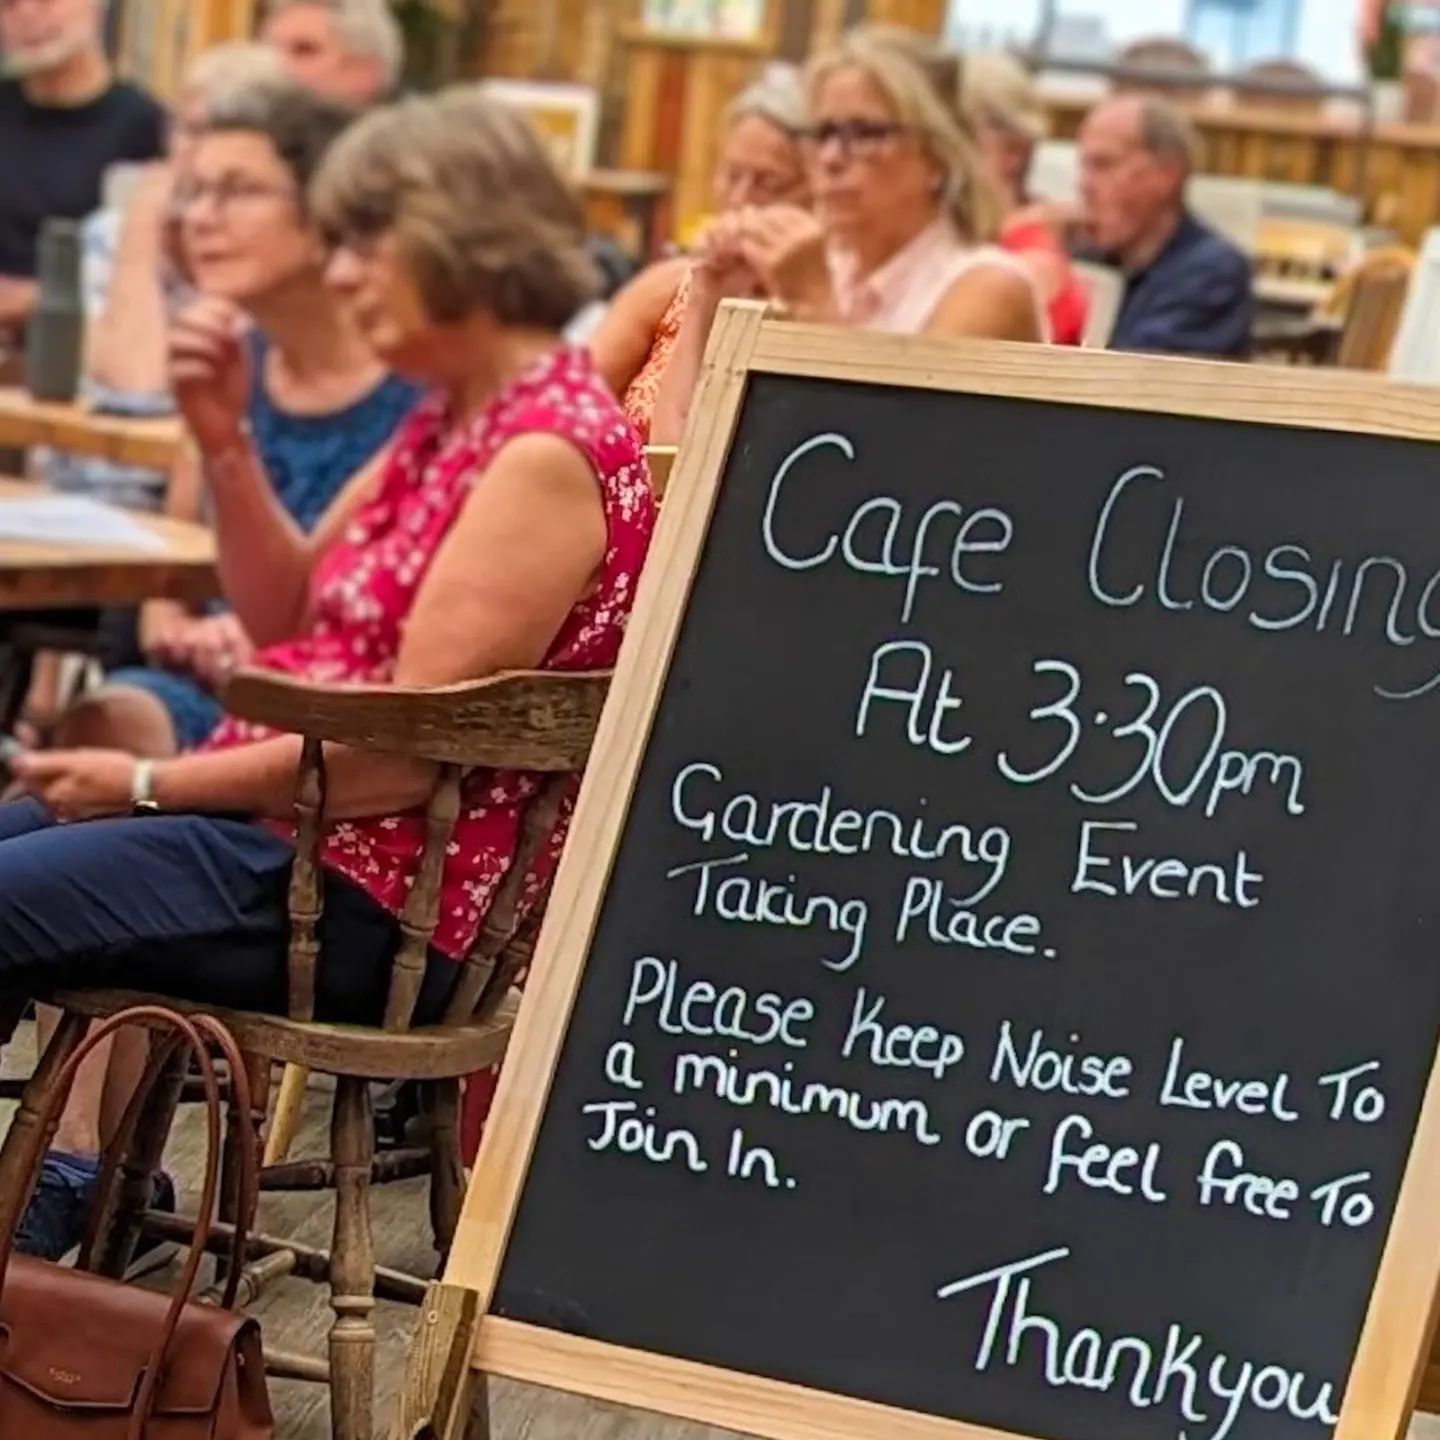 Cafe Closing
At 3:30pm
Gardening Event
Taking Place.
Please Keep Noise Level To
a minimum or feel free To
Join In.
Thankyou